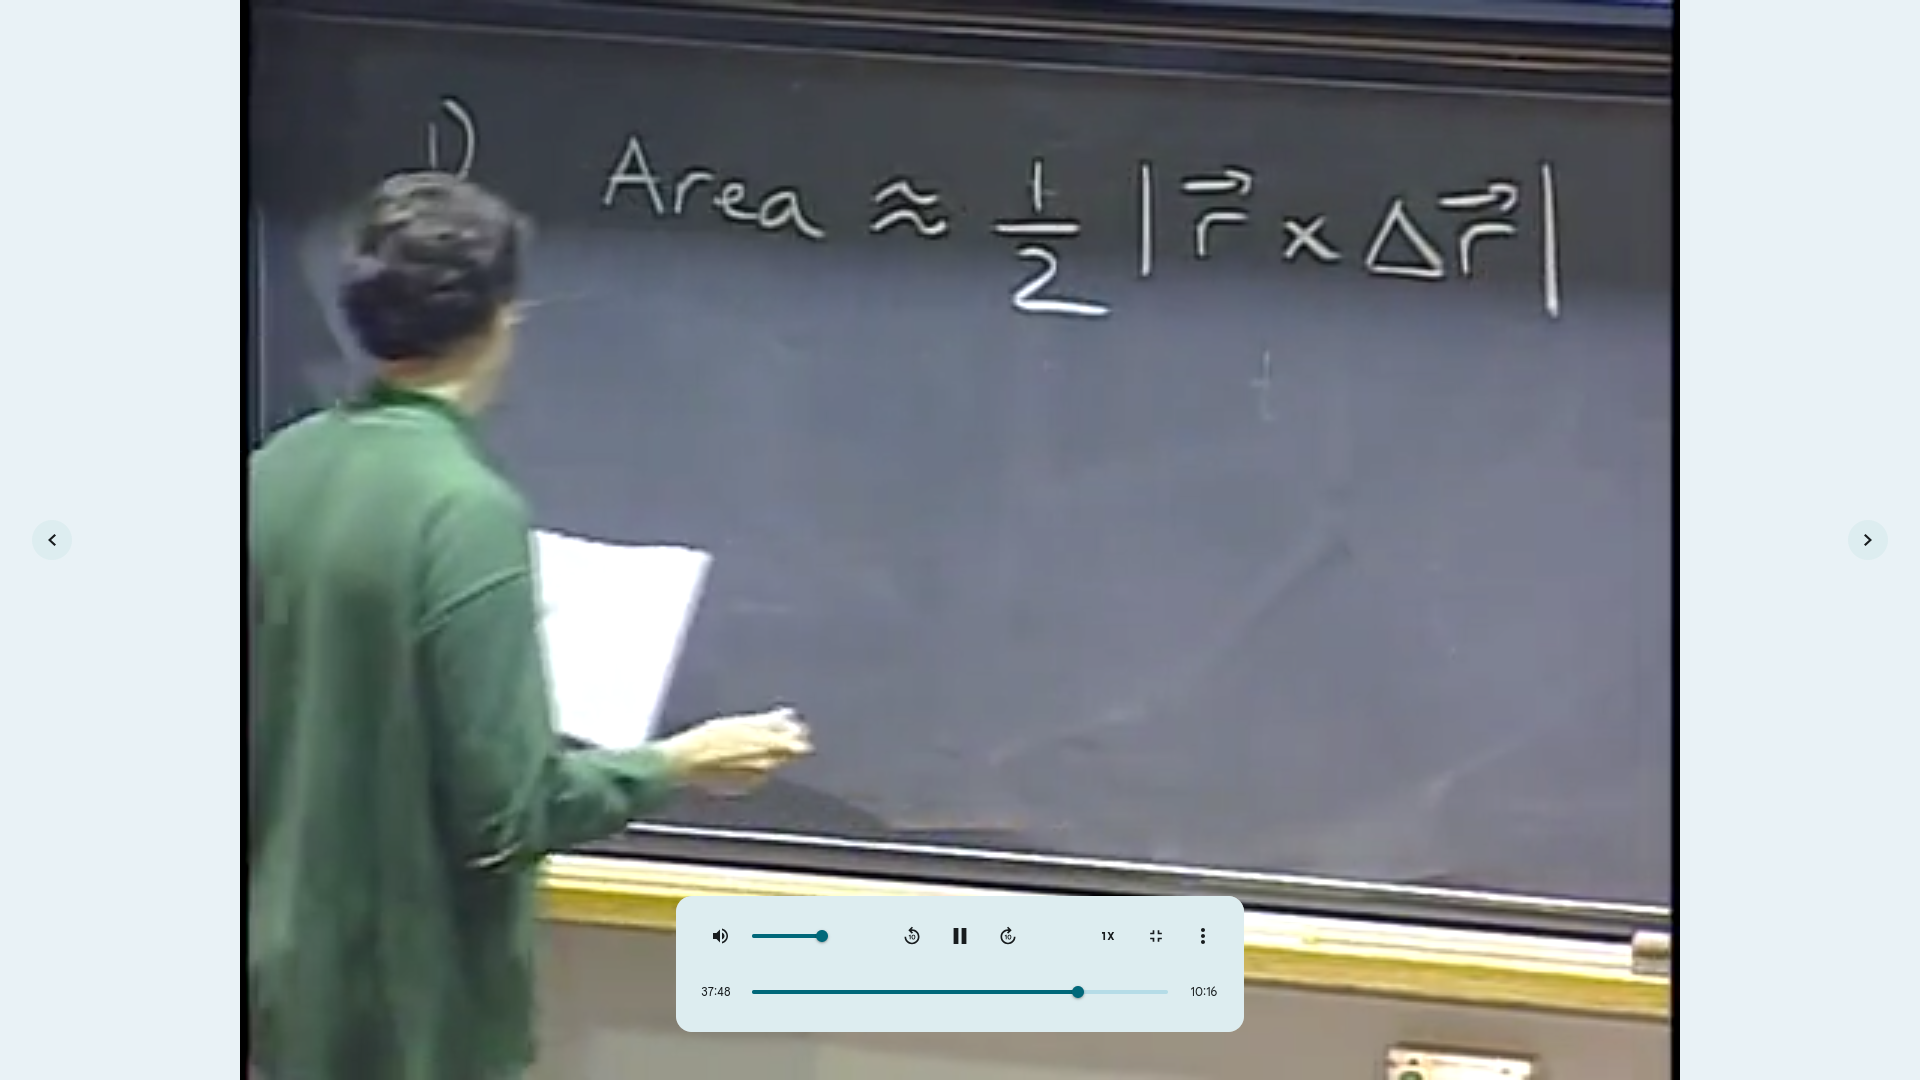 1) Area ≈ 1/2 |r⃗ × Δr⃗|
10 10 1X
37:48 10:16